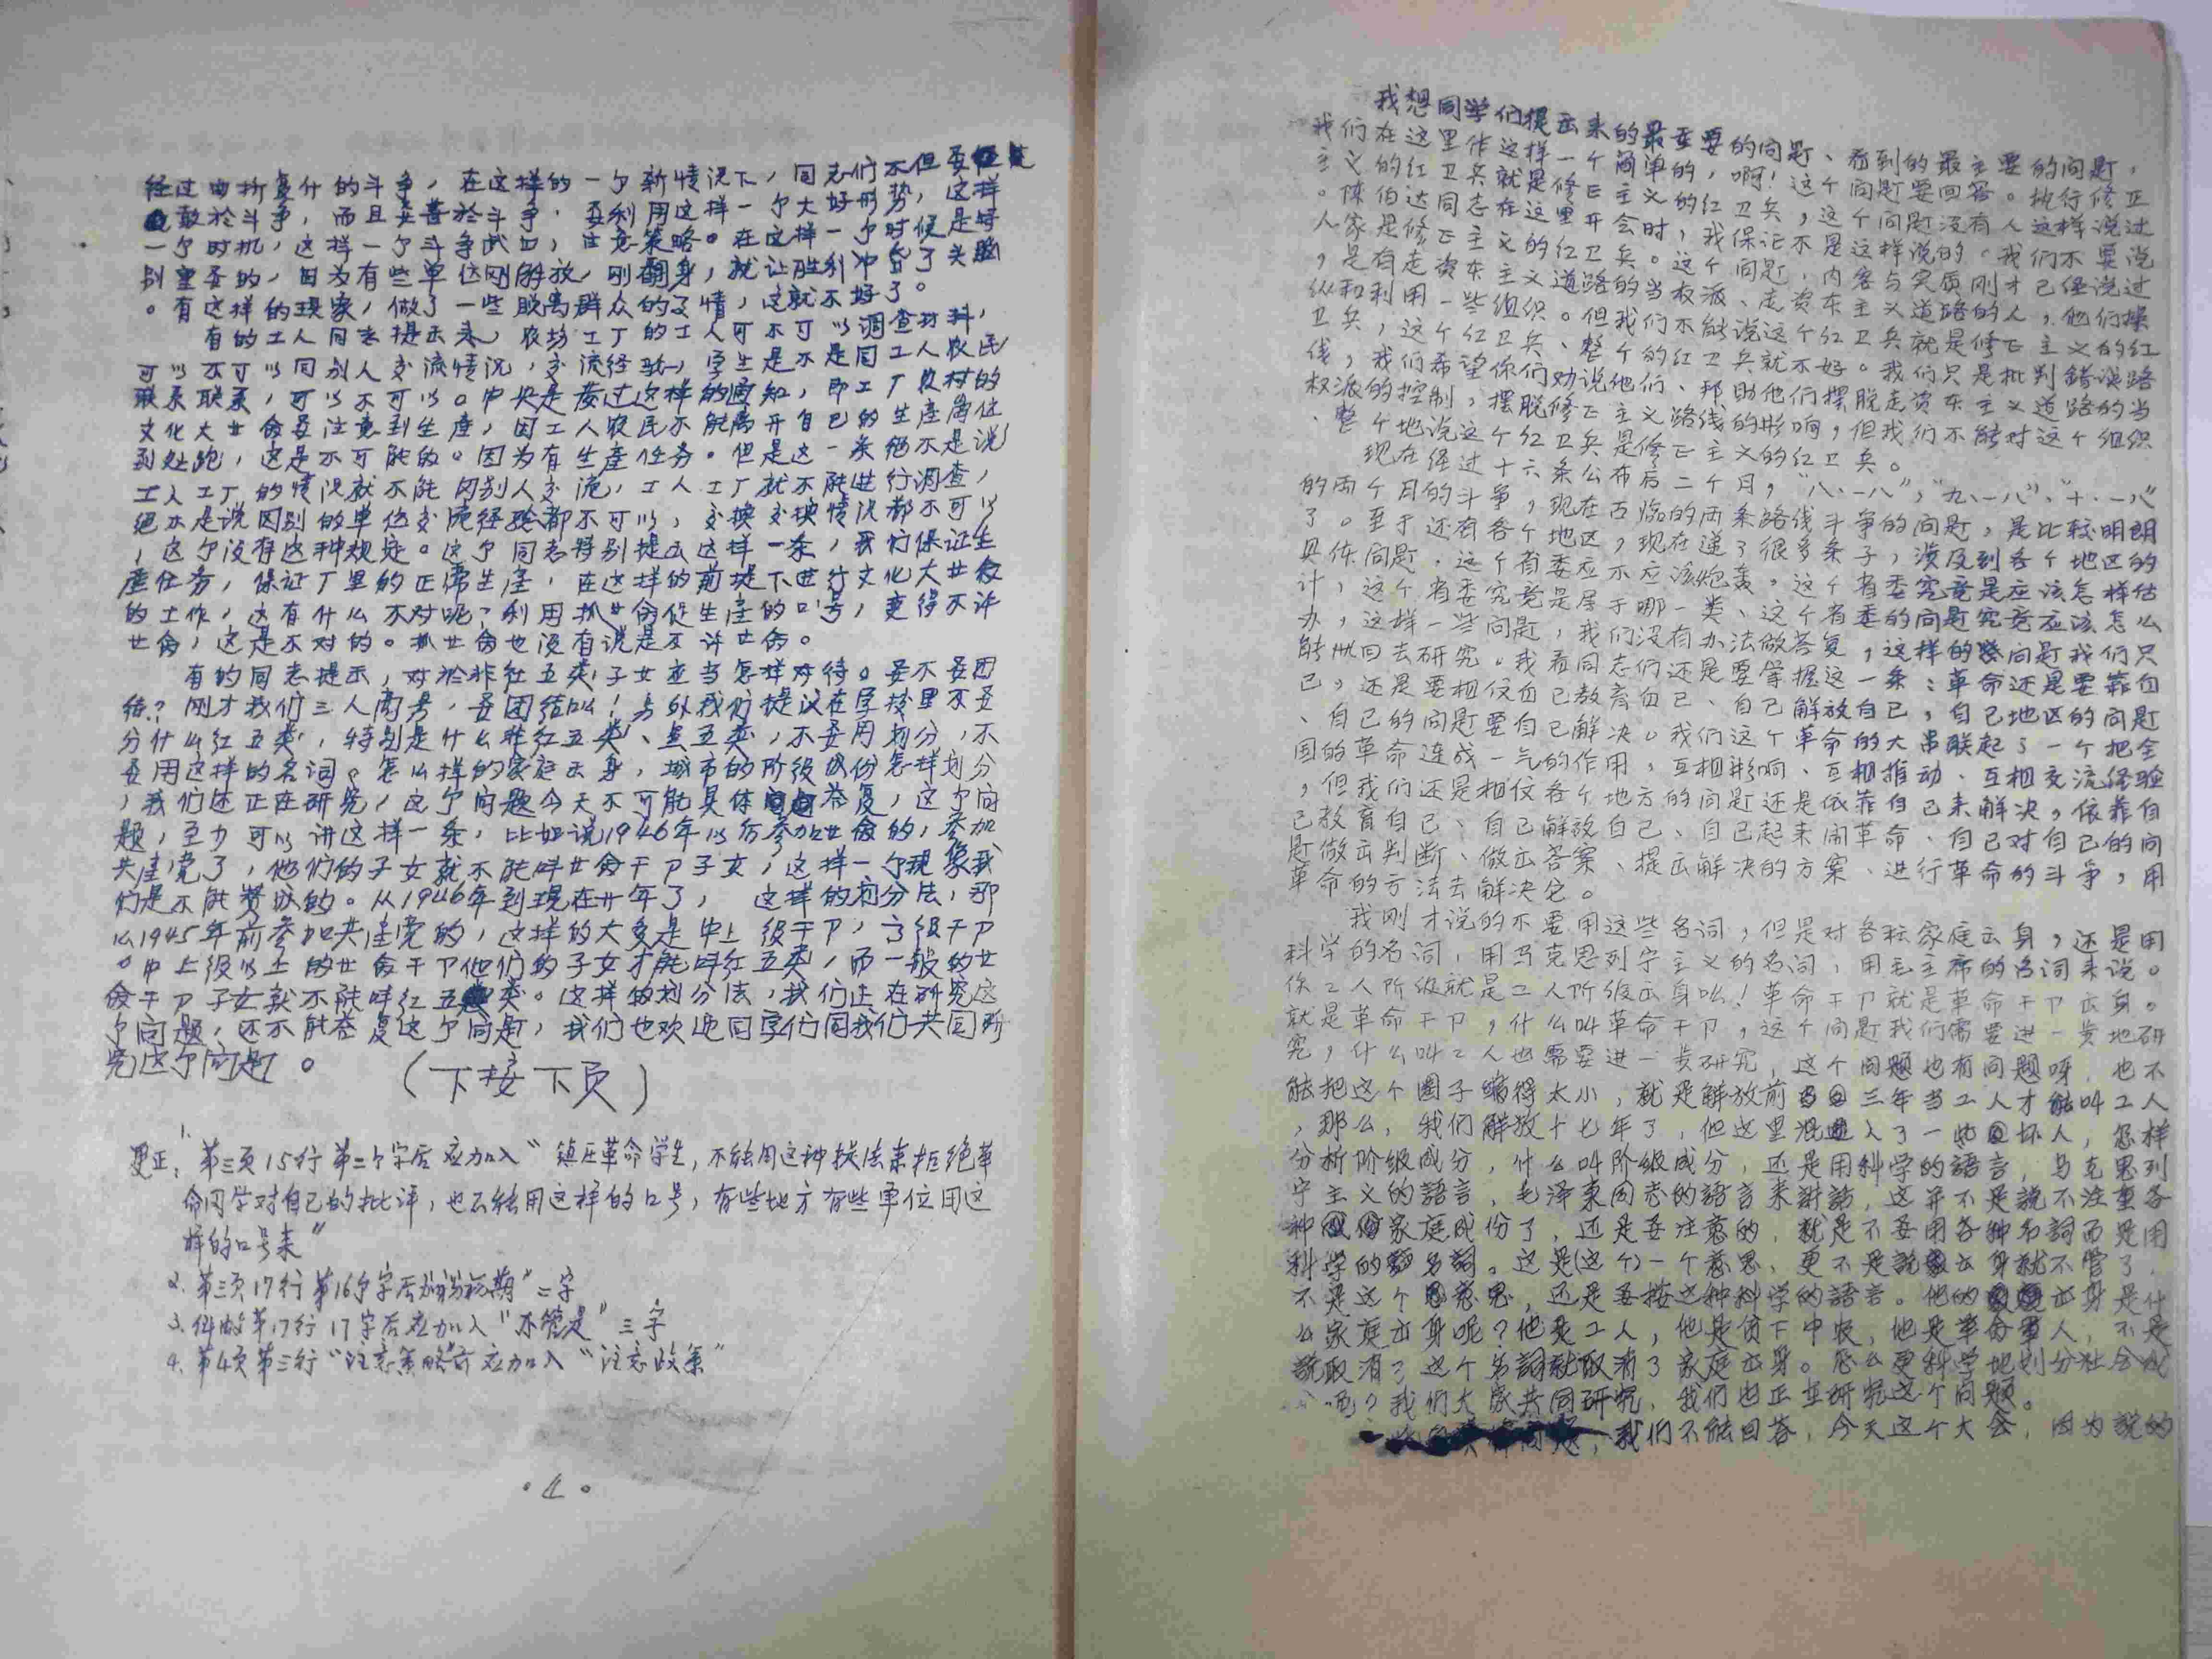 经过曲折复什的斗争，在这样的一个新情况下，同志们不但要
敢於斗争，而且要善於斗争，要利用这样一个大好形势，这样
一个时机，这样一个斗争武口，注意策略。在这样一个时候是特
别重要的，因为有些单位刚解放，刚翻身，就让胜利冲昏了头脑
。有这样的现象，做了一些脱离群众的事情，这就不好了。
有的工人同志提出来，农场工厂的工人可不可以调查材料，
可以不可以同别人交流情况，交流经验，学生是不是同工人农民
联系联系，可以不可以。中央是发过这样的通知，即工厂农村的
文化大革命要注意到生産，因工人农民不能离开自己的生産岗位
到处跑，这是不可能的。因为有生産任务。但是这一条绝不是说
工人工厂的情况就不能同别人交流，工人工厂就不能进行调查，
绝不是说同别的单位交流经验都不可以，交换交换情况都不可以
，这个没有这种规定。这个同志特别提出这样一条，我们保证生
産任务，保证厂里的正常生産，在这样的前提下进行文化大革命
的工作，这有什么不对呢？利用抓革命促生産的口号，变得不许
革命，这是不对的。抓革命也没有说是不许革命。
有的同志提示，对於非红五类子女应当怎样对待。要不要团
结？刚才我们三人商考，要团结叫！另外我们提议在学校里不要
分什么红五类，特别是什么非红五类、黑五类，不要用划分，不
要用这样的名词。怎么样的家庭出身，城市的阶级成份怎样划分
，我们还正在研究，这个问题今天不可能具体答复，这个问
题，至少可以讲这样一条，比如说1946年以后参加革命的，参加
共産党了，他们的子女就不能叫革命干卩子女，这样一个现象我
们是不能赞成的。从1946年到现在廿年了，这样的划分法，那
么1945年前参加共産党的，这样的大多是中上级干卩，高级干卩
。中上级以上的革命干卩他们的子女才能叫红五类，而一般的革
命干卩子女就不能叫红五类。这样的划分法，我们正在研究这
个问题，还不能答复这个问题，我们也欢迎同学们同我们一共同研
究这个问题。
（下接下页）
更正：1. 第三页15行第二个字后应加入“镇压革命学生，不能用这种扶法来拒绝革
命同学对自己的批评，也不能用这样的口号，有些地方有些单位用这
样的口号来”
2. 第三页17行第16个字后加 “二字
3. 第17行17字后应加入“不管是”三字
4. 第4页第三行“注意策略”前应加入“注意政策”
·4·
我想同学们提出来的最主要的问题、看到的最主要的问题，
我们在这里作这样一个简单的，啊！这个问题要回答。执行修正
主义的红卫兵就是修正主义的红卫兵，这个问题没有人这样说过
。陈伯达同志在这里开会时，我保证不是这样说的。我们不要说
人家是修正主义的红卫兵。这个问题，内容与实质刚才已经说过
，是有走资本主义道路的当权派、走资本主义道路的人，他们操
纵和利用一些组织。但我们不能说这个红卫兵就是修正主义的红
卫兵，这个红卫兵、整个的红卫兵就不好。我们只是批判错误路
线，我们希望你们劝说他们、帮助他们摆脱走资本主义道路的当
权派的控制，摆脱修正主义路线的影响，但我们不能对这个组织
、整个地说这个红卫兵是修正主义的红卫兵。
现在经过十六条公布后二个月，“八、一八”，“九、一八”、“十、一八”
的两个月的斗争，现在否临的两条路线斗争的问题，是比较明朗
了。至于还有各个地区，现在递了很多条子，涉及到各个地区的
具体问题，这个省委应不应该炮轰，这个省委究竟是应该怎样估
计，这个省委究竟是属于哪一类、这个省委的问题究竟应该怎么
办，这样一些问题，我们没有办法做答复，这样的问题我们只
能带回去研究。我看同志们还是要掌握这一条：革命还是要靠自
己，还是要相仅自己教育自己、自己解放自己，自己地区的问题
、自己的问题要自己解决。我们这个革命的大串联起了一个把全
国的革命连成一气的作用，互相影响、互相推动、互相交流经验
，但我们还是相仅各个地方的问题还是依靠自己来解决，依靠自
己教育自己、自己解放自己、自己起来闹革命、自己对自己的问
题做出判断、做出答案、提出解决的方案、进行革命的斗争，用
革命的方法去解决它。
我刚才说的不要用这些名词，但是对各种家庭出身，还是用
科学的名词，用马克思列宁主义的名词，用毛主席的名词来说。
你工人阶级就是工人阶级出身吆！革命干卩就是革命干卩出身。
就是革命干卩，什么叫革命干卩，这个问题我们需要进一步地研
究，什么叫工人也需要进一步研究，这个问题也有问题呀，也不
能把这个圈子缩得太小，就是解放前三年当工人才能叫工人
，那么，我们解放十七年了，但这里混进入了一些坏人，怎样
分析阶级成分，什么叫阶级成分，还是用科学的語言，马克思列
宁主义的語言，毛泽东同志的語言来講話，这并不是説不注重各
种家庭成份了，还是要注意的，就是不要用各种名詞而是用
科学的名詞。这是(这个)一个意思，更不是説出身就不管了，
不是这个意思，还是要按这种科学的語言。他的出身是什
么家庭出身呢？他是工人，他是贫下中农，他是革命軍人，不是
説取消了这个名詞就取消了家庭出身。怎么更科学地划分社会成
分呢？我们大家共同研究，我们也正在研究这个问题。
问题，我们不能回答，今天这个大会，因为説的